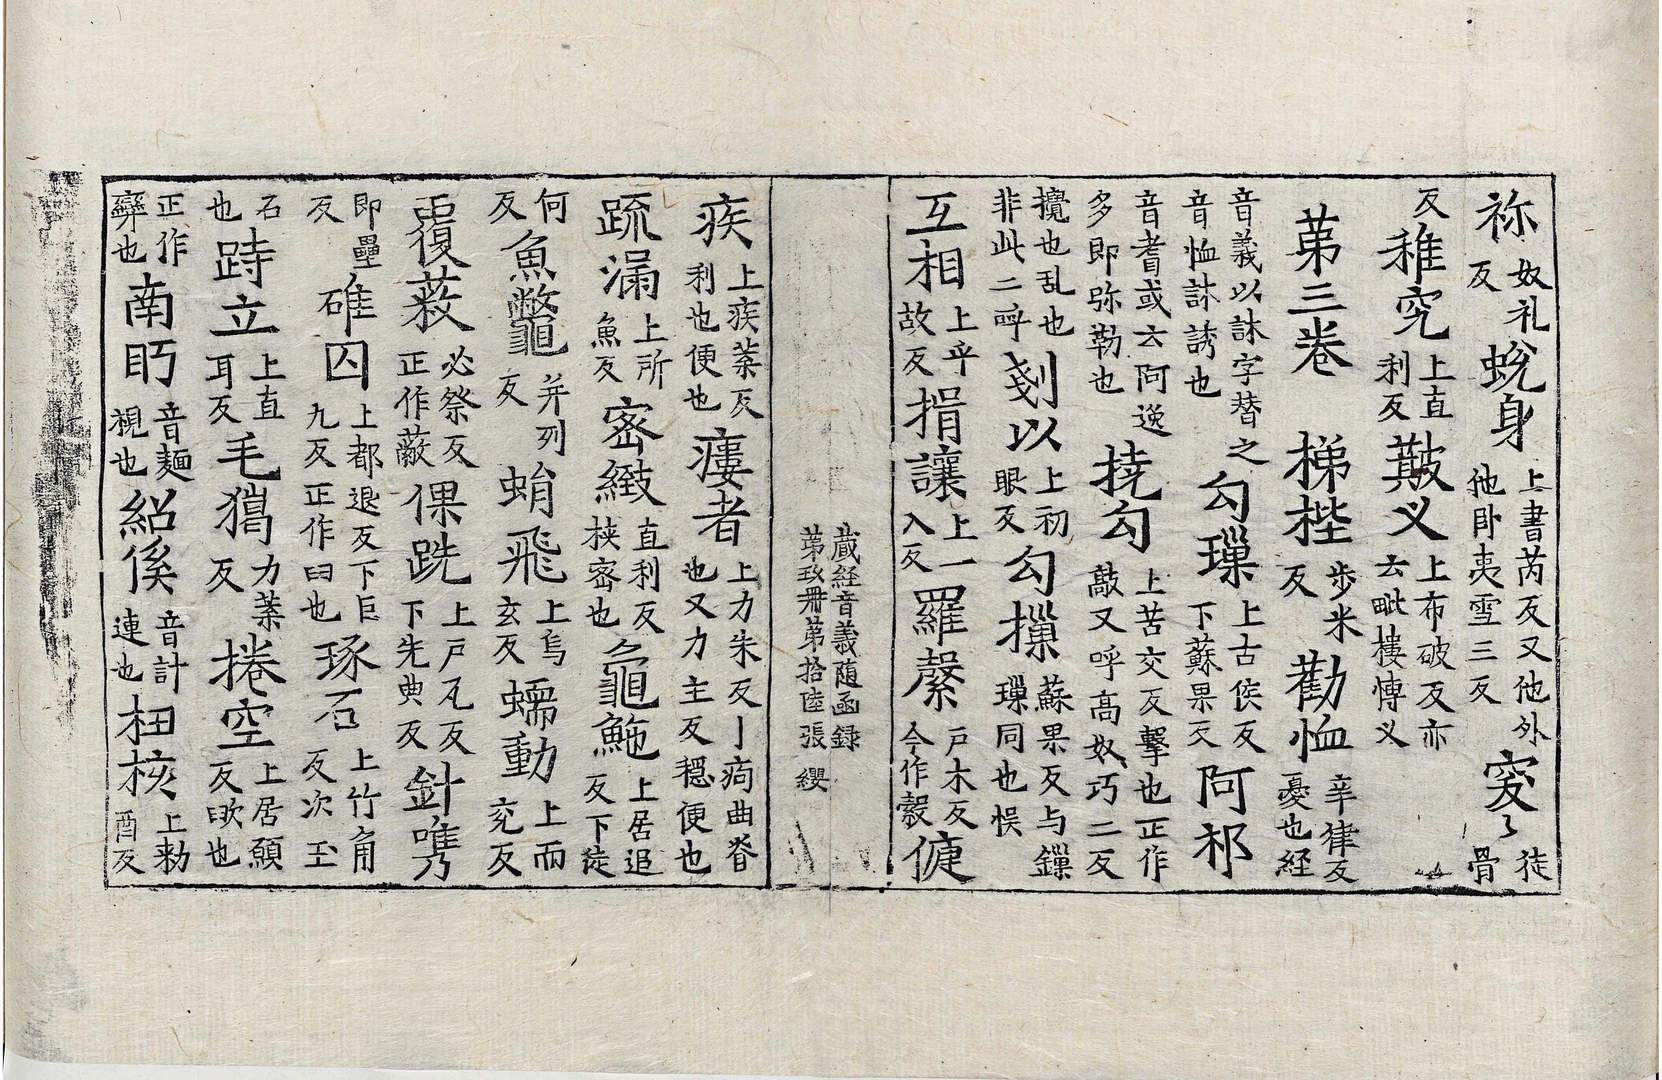 祢奴礼反蛻身上書芮反又他外他卧夷雪三反窔〻徒骨
反稚究上直利反䵗义上布破反亦云毗樓愽义
苐三卷 梯梐步米反勸恤辛律反憂也経
音義以訹字替之音恤訹誘也勾璅上古侯反下蘇果反阿祁
音耆或云阿逸多即弥勒也撓勾上苦交反擊也正作敲又呼高奴巧二反
攪也乱也非此二呼剗以上初眼反勾摷蘇果反与鏁璅同也悮
互相上乎故反揖讓上一入反羅縏戶木反今作縠傂
藏経音義随函録
苐玖冊苐拾陸張 纓
疾上疾䔣反利也便也瘻者上力朱反〡病曲脊也又力主反穩便也
䟽漏上所魚反密緻直利反挟密也龜鮑上居追反下徒
何反魚鼈并列反蜎飛上烏玄反蠕動上而兖反
覆蔽必祭反正作蔽倮跣上戶瓦反下先典反針嶲
即壘反碓囚上都退反下臼九反正作臼也琢石上竹角反次玉
石也跱立上直耳反毛獦力䔣反捲空上居願反㽎也
正作弊也南眄音麺視也紹係音計連也杻械上勑酉反